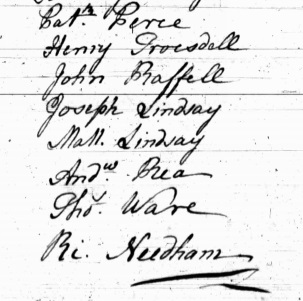 Patk. Perce
Henry Troesdall
John Raffell
Joseph Lindsay
Matt. Lindsay
Andw. Rea
Thos. Ware
Ri. Needham